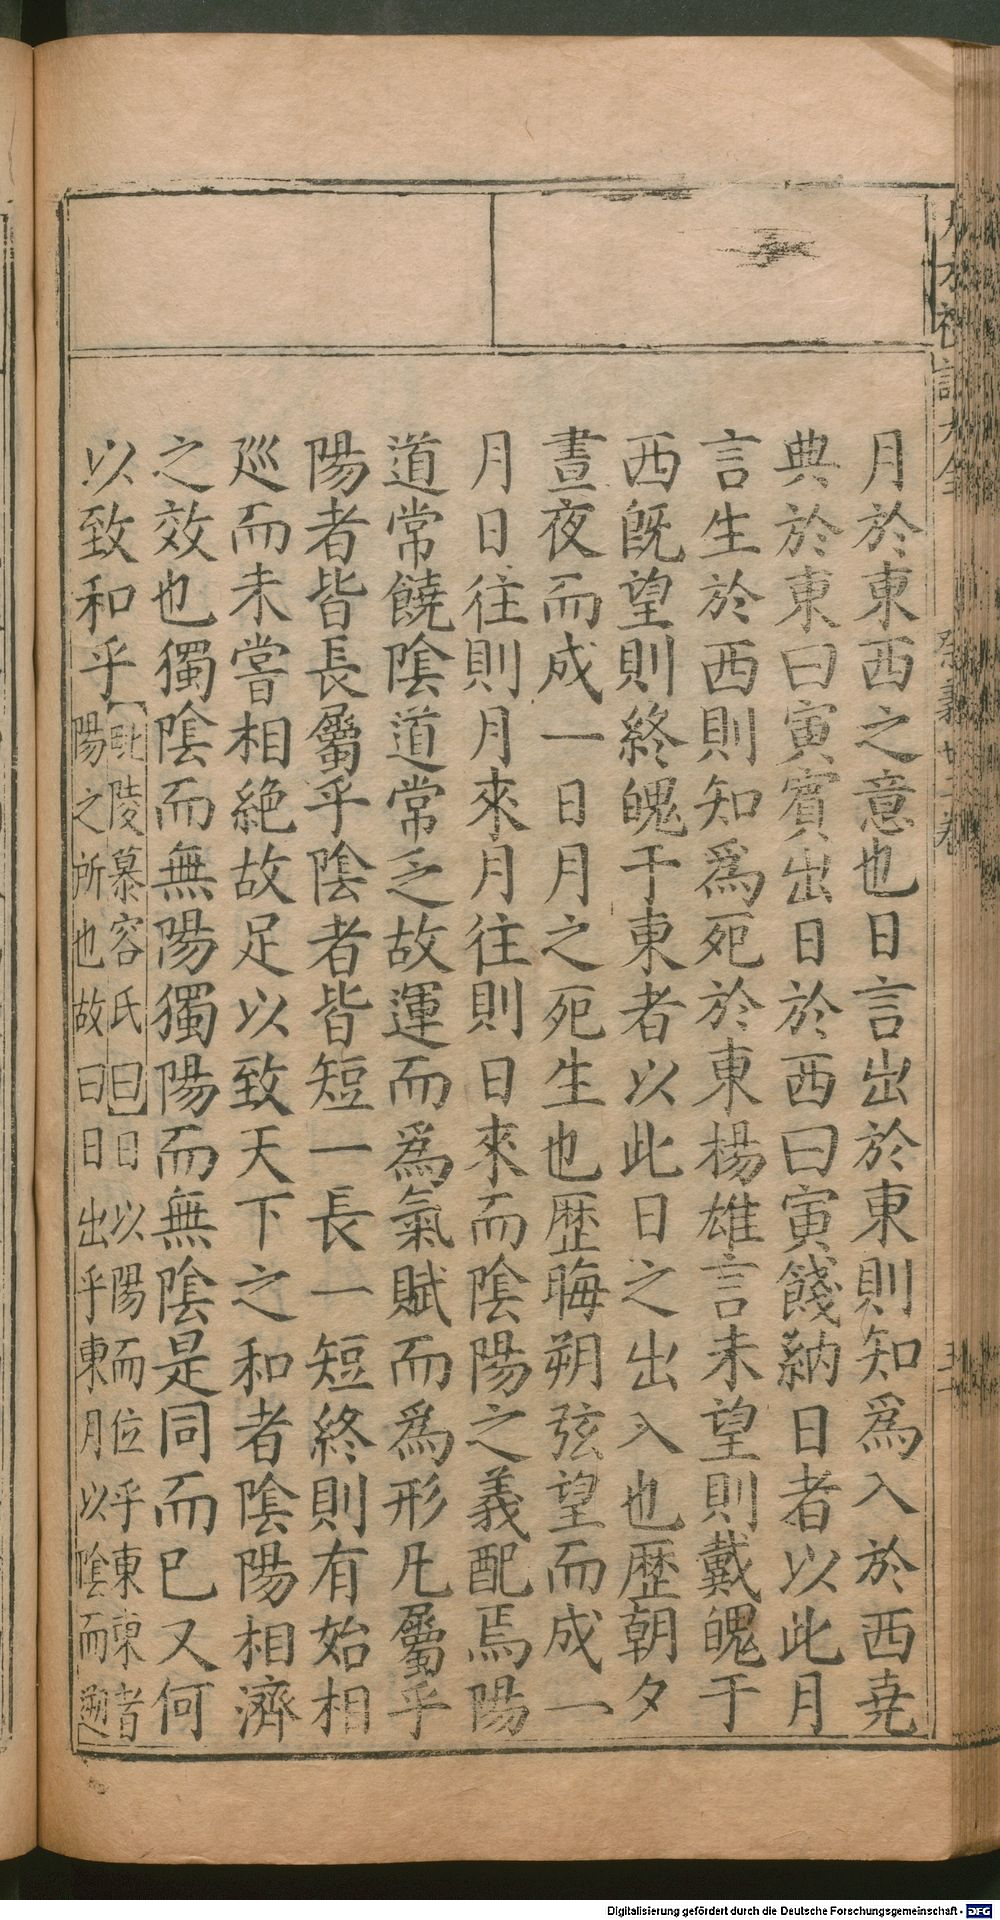 月於東西之意也日言出於東則知爲入於西堯
典於東曰寅賓出日於西曰寅餞納日者以此月
言生於西則知爲死於東楊雄言未望則戴魄于
西既望則終魄于東者以此日之出入也歴朝夕
晝夜而成一日月之死生也歴晦朔弦望而成一
月日往則月來月往則日來而陰陽之義配焉陽
道常饒陰道常乏故運而爲氣賦而爲形凡屬乎
陽者皆長屬乎陰者皆短一長一短終則有始相
巡而未嘗相絶故足以致天下之和者陰陽相濟
之效也獨陰而無陽獨陽而無陰是同而已又何
以致和乎
【毗陵慕容氏曰】日以陽而位乎東東者
陽之所也故曰日出乎東月以陰而遡
Digitalisierung gefördert durch die Deutsche Forschungsgemeinschaft - DFG